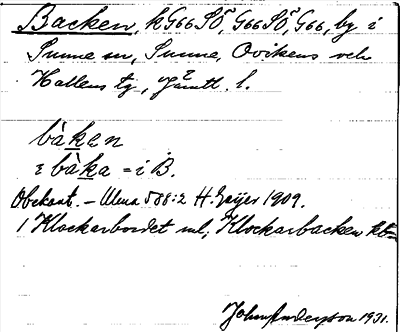 Backen, h G66 SÖ, G66 SÖ, G66, by i
Sunne sn, Sunne, Ovikens och
Hallens tg, Jämtl. l.
bàken
i bàka = i B.
Obekant. – Ulma 588:2 H. Geijer 1909.
1 Klockarbordet ml; Klockarbacken
John Anderson 1931.